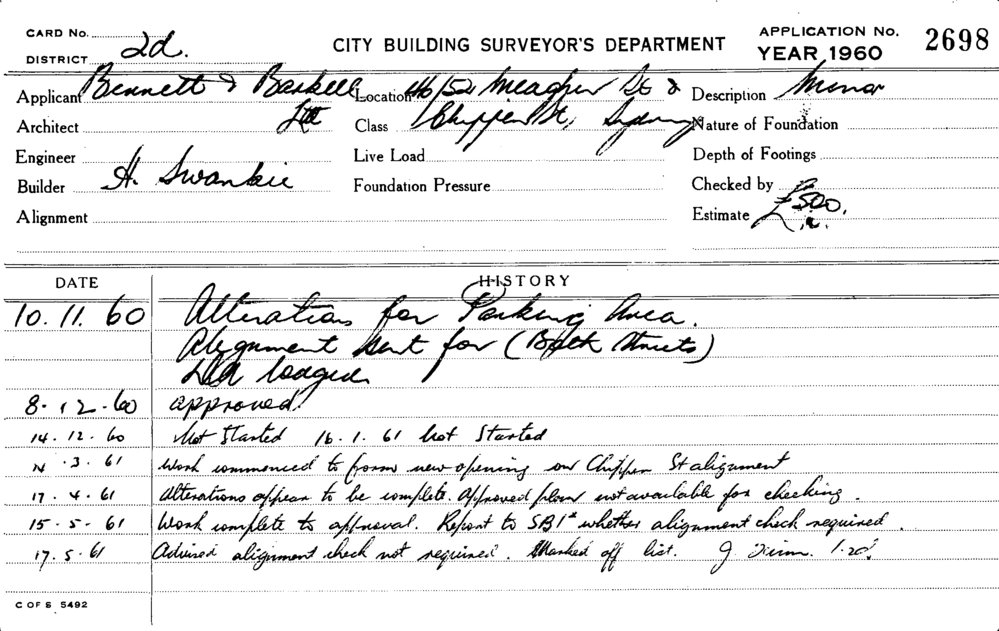 CARD No.
DISTRICT 2d.
CITY BUILDING SURVEYOR'S DEPARTMENT
APPLICATION No.
YEAR 1960
2698
Applicant Bennett & Barkell Ltd
Location 46/52 Meagher St &
Description Minor
Architect
Class Chippen St, Sydney
Nature of Foundation
Engineer
Live Load
Depth of Footings
Builder H. Swankie
Foundation Pressure
Checked by
Alignment
Estimate £500.
DATE
HISTORY
10. 11. 60 Alterations for Parking Area.
Alignment sent for (Both Streets)
DA lodged
8. 12. 60 approved.
14. 12. 60 Not Started 16. 1. 61 Not Started
.3. 61 Work commenced to form new opening on Chippen St alignment
17. 4. 61 Alterations appear to be complete. Approved plan not available for checking.
15. 5. 61 Work complete to approval. Report to SBI whether alignment check required.
17. 5. 61 Advised alignment check not required. Marked off list. J.
C OF S 5492